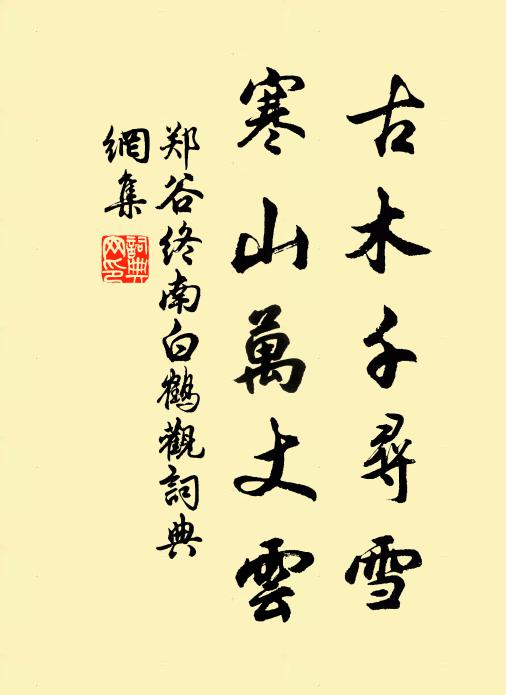 古木千尋雪
寒山萬丈雲
郑谷终南白鶴觀詞典
網集
詞典網印